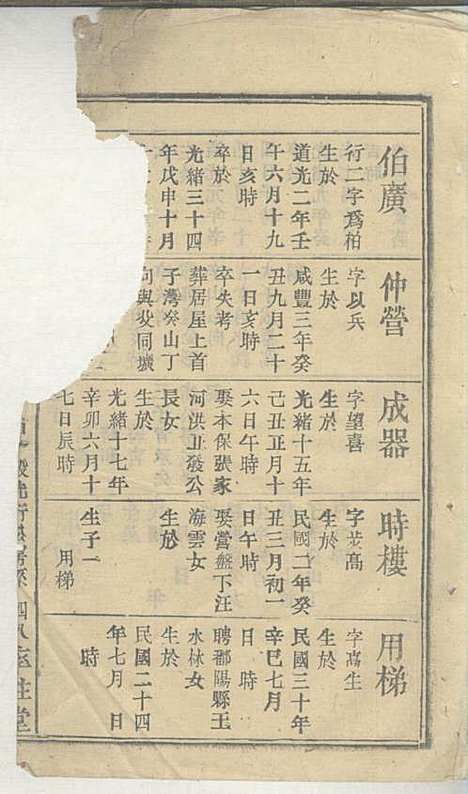 伯廣
行二字爲柏
生於
道光二年壬
午六月十九
日亥時
卒於
光緒三十四
年戊申十月
仲營
字以兵
生於
咸豐三年癸
丑九月二十
一日亥時
卒失考
葬居屋上首
子灣癸山丁
向與父同壙
成器
字望喜
生於
光緒十五年
己丑正月十
六日午時
娶本保張家
河洪丑發公
長女
生於
光緒十七年
辛卯六月十
七日辰時
時樓
字並高
生於
民國二年癸
丑三月初一
日午時
娶嘗盤下汪
海雲女
生於
生子一
用梯
用梯
字高生
生於
民國三十年
辛巳七月
日 時
聘鄱陽縣王
水林女
生於
民國二十四
年七月 日
時